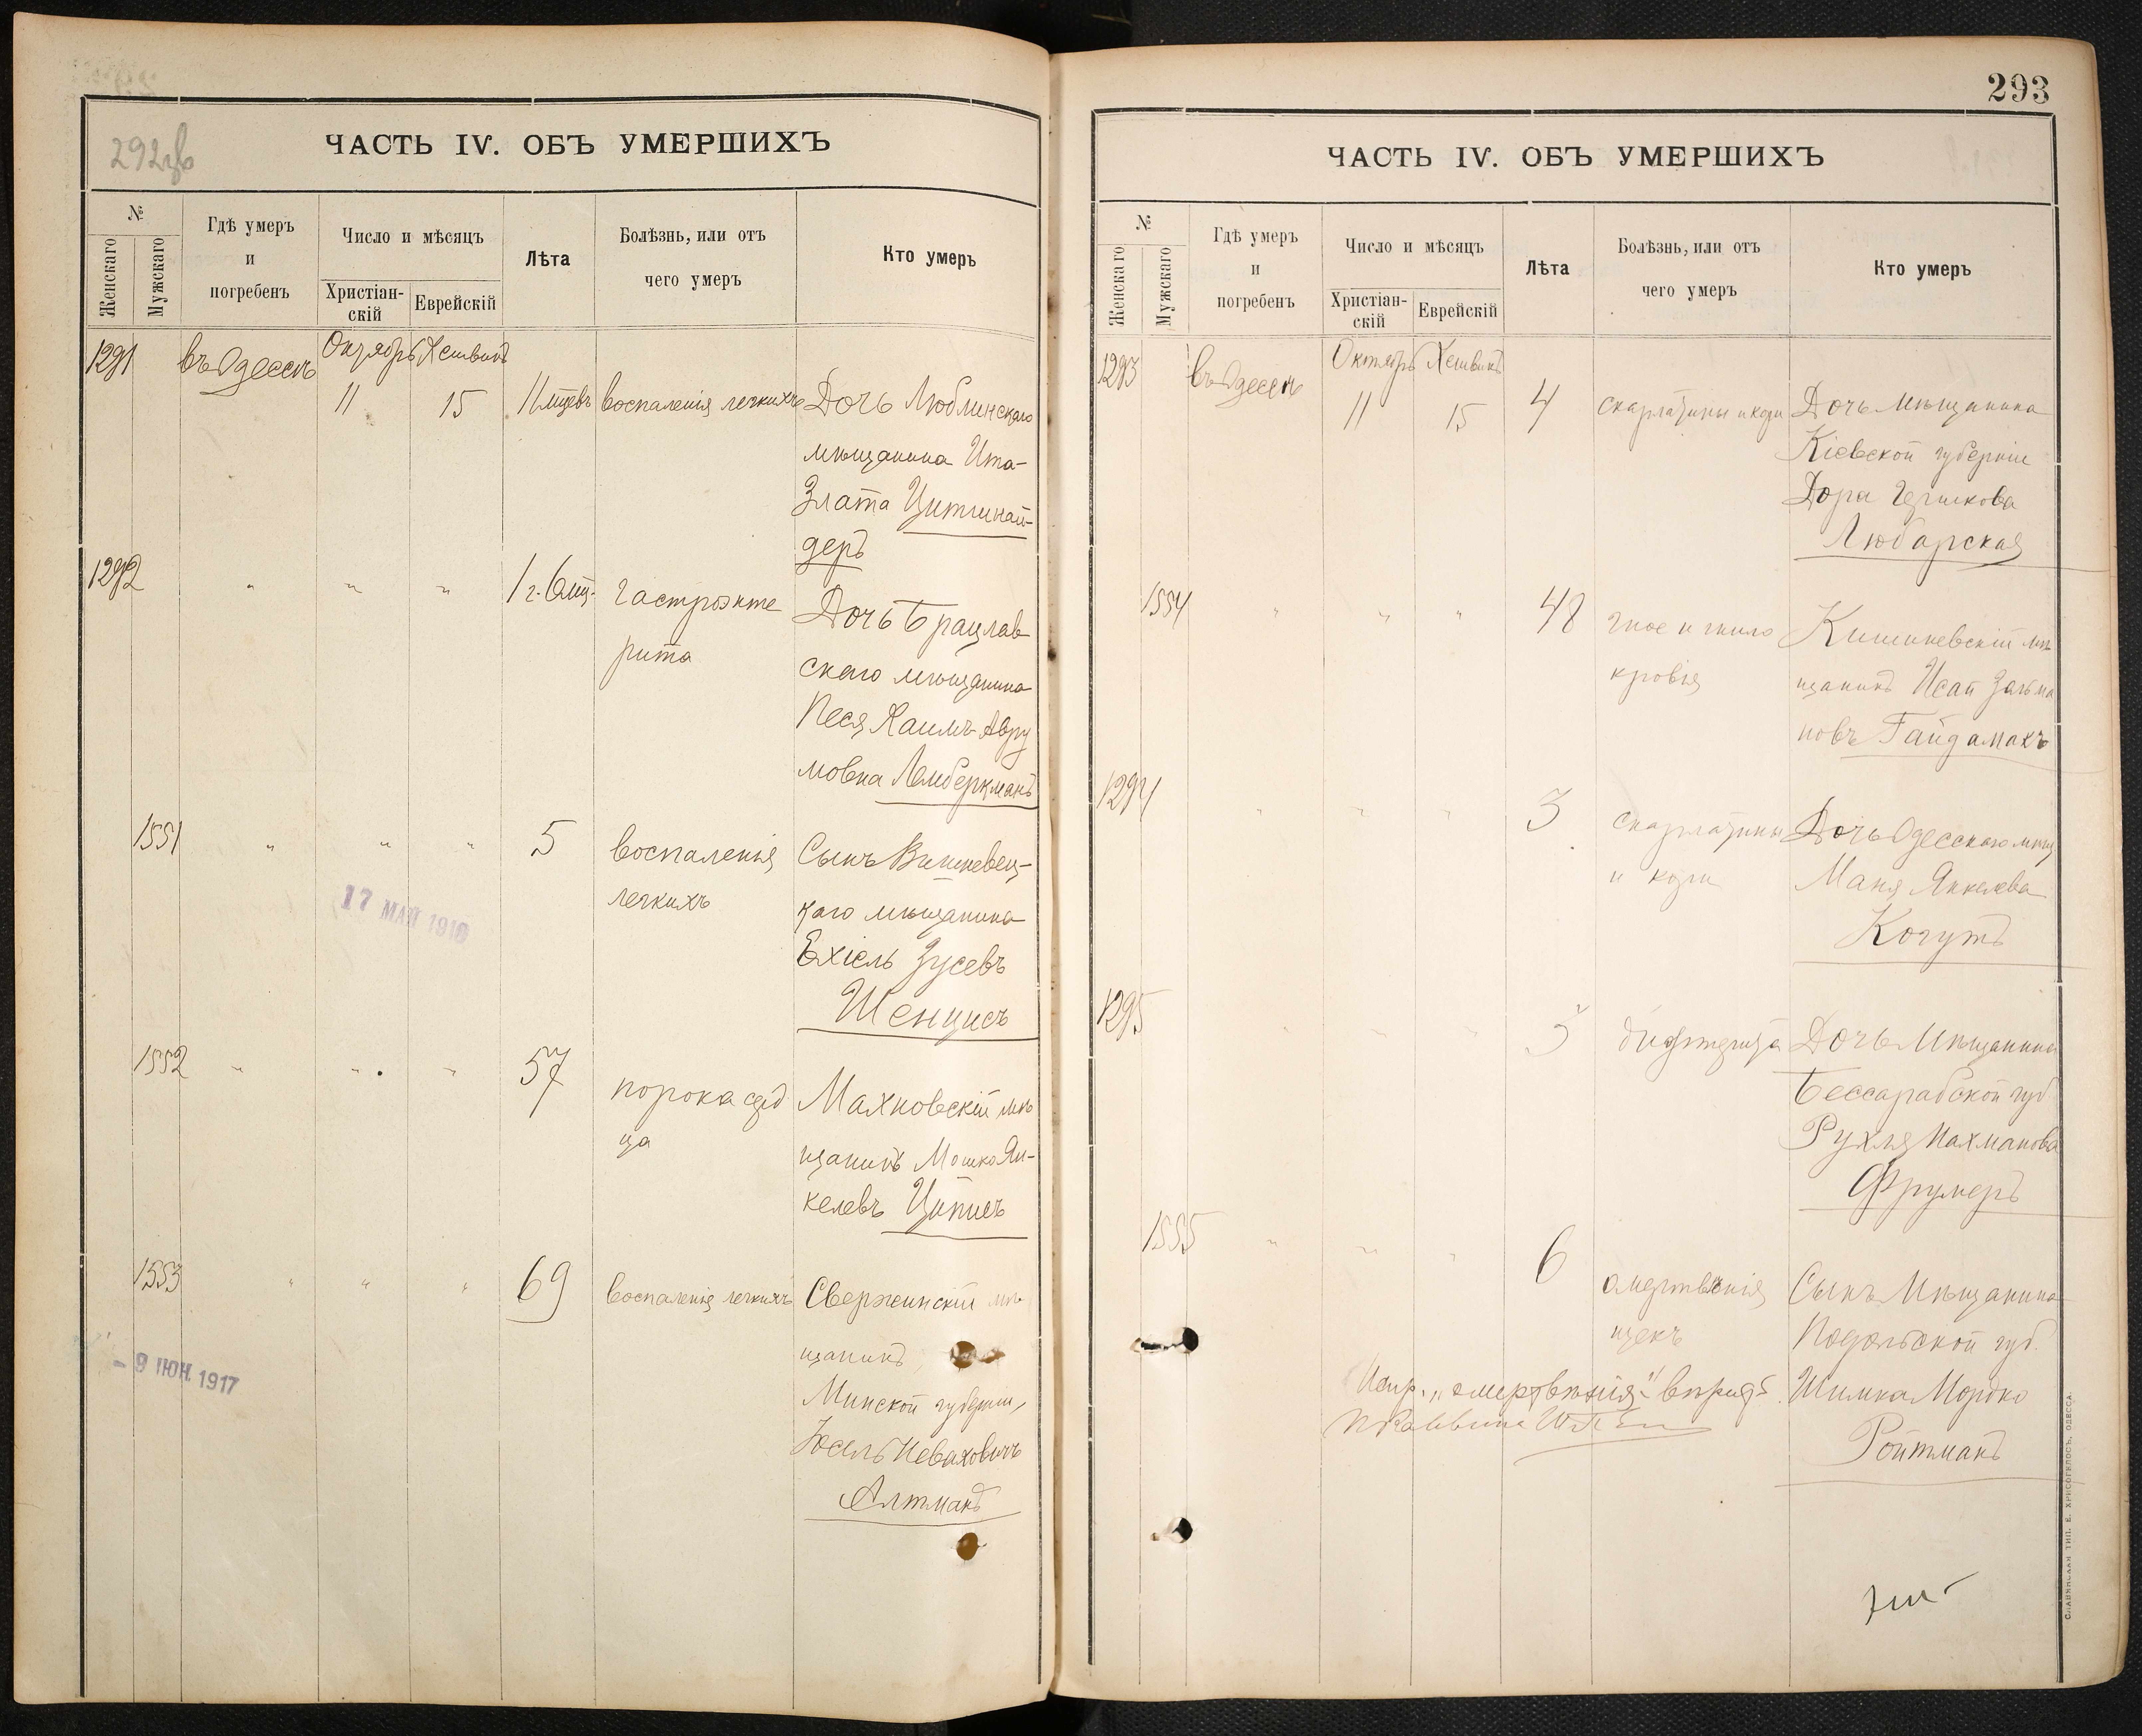 292об
ЧАСТЬ IV. ОБЪ УМЕРШИХЪ
№
Женскаго
Мужскаго
Гдѣ умеръ
и
погребенъ
Число и мѣсяцъ
Христіан-
скій
Еврейскій
Лѣта
Болѣзнь, или отъ
чего умеръ
Кто умеръ
Октябрь Хешвинъ
1291 въ Одессѣ 11 15 11 мцевъ воспаленія легкихъ Дочь Люблинскаго
мѣщанина Ита-
Злата
деръ
1292 " " " 1 г. 6 мц. гастроэнте Дочь Брацлав
рита скаго мѣщанина
Песя Хаимъ-Авру
мовна Лемберкманъ
1551 " " " 5 воспаленія Сынъ Вишневец-
легкихъ каго мѣщанина
Ехіель Зусевъ
Шенцисъ
17 МАЙ 1916
1552 " " " 57 порока серд Махновскій мѣ
ца щанинъ Мошко Ян-
келевъ Циписъ
1553 " " " 69 воспаленія легкихъ Сверженскій мѣ
щанинъ
- 9 ІЮН. 1917
Минской губерніи,
Іосель Неваховичъ
Алтманъ
293
ЧАСТЬ IV. ОБЪ УМЕРШИХЪ
№
Женскаго
Мужскаго
Гдѣ умеръ
и
погребенъ
Число и мѣсяцъ
Христіан-
скій
Еврейскій
Лѣта
Болѣзнь, или отъ
чего умеръ
Кто умеръ
Октябрь Хешвинъ
1293 въ Одессѣ 11 15 4 скарлатины и кори Дочь мѣщанина
Кіевской губерніи
Дора Гершкова
Любарская
1554 " " " 48 гное и гнило Кишиневскій мѣ
кровія щанинъ Исай Зальма
новъ Гайдамакъ
1294 " " " 3 скарлатины Дочь Одесскаго мѣщ
и кори Маня Янкелева
Когутъ
1295 " " " 5 дифтерита Дочь Мѣщанина
Бессарабской губ
Рухля Нахманова
Фрумеръ
1555 " " " 6 омертвѣнія Сынъ Мѣщанина
щекъ Подольской губ.
Испр. „омертвѣнія" Шимка Мордко
Раввина
Ройтманъ
СЛАВЯНСКАЯ ТИП. Е. ХРИСОГЕЛОСЪ, ОДЕССА.